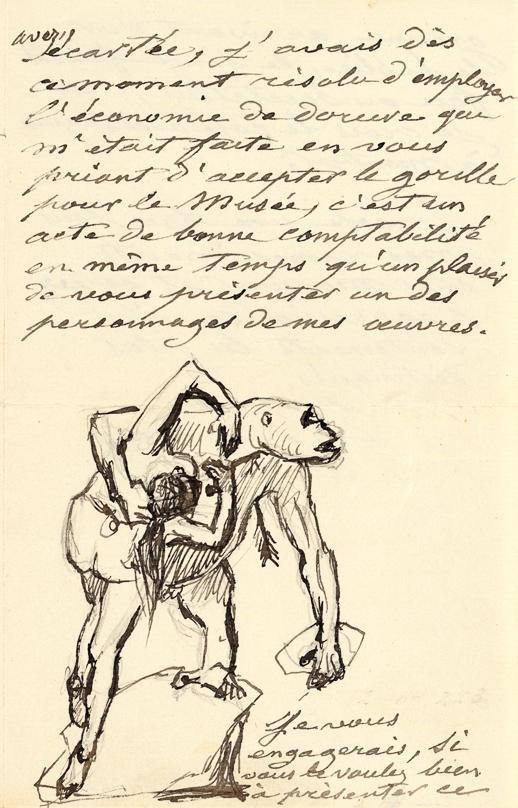 écartée, j'avais dès
ce moment résolu d'employer
l'économie de dorure qui
m'était faite en vous
priant d'accepter le gorille
pour le Musée, c'est un
acte de bonne comptabilité
en même temps qu'un plaisir
de vous présenter un des
personnages de mes œuvres.
Je vous
engagerais, si
vous le voulez bien
à présenter ce